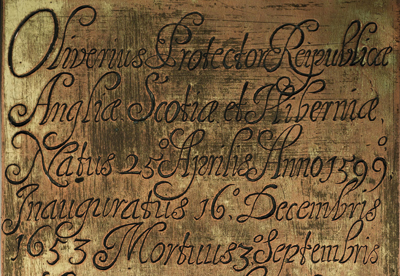 Oliverius Protector Reipublicæ
Angliæ Scotiæ et Hiberniæ.
Natus 25º Aprilis Anno 1599º.
Inauguratus 16º Decembris
1653 Mortuus 3º Septembris